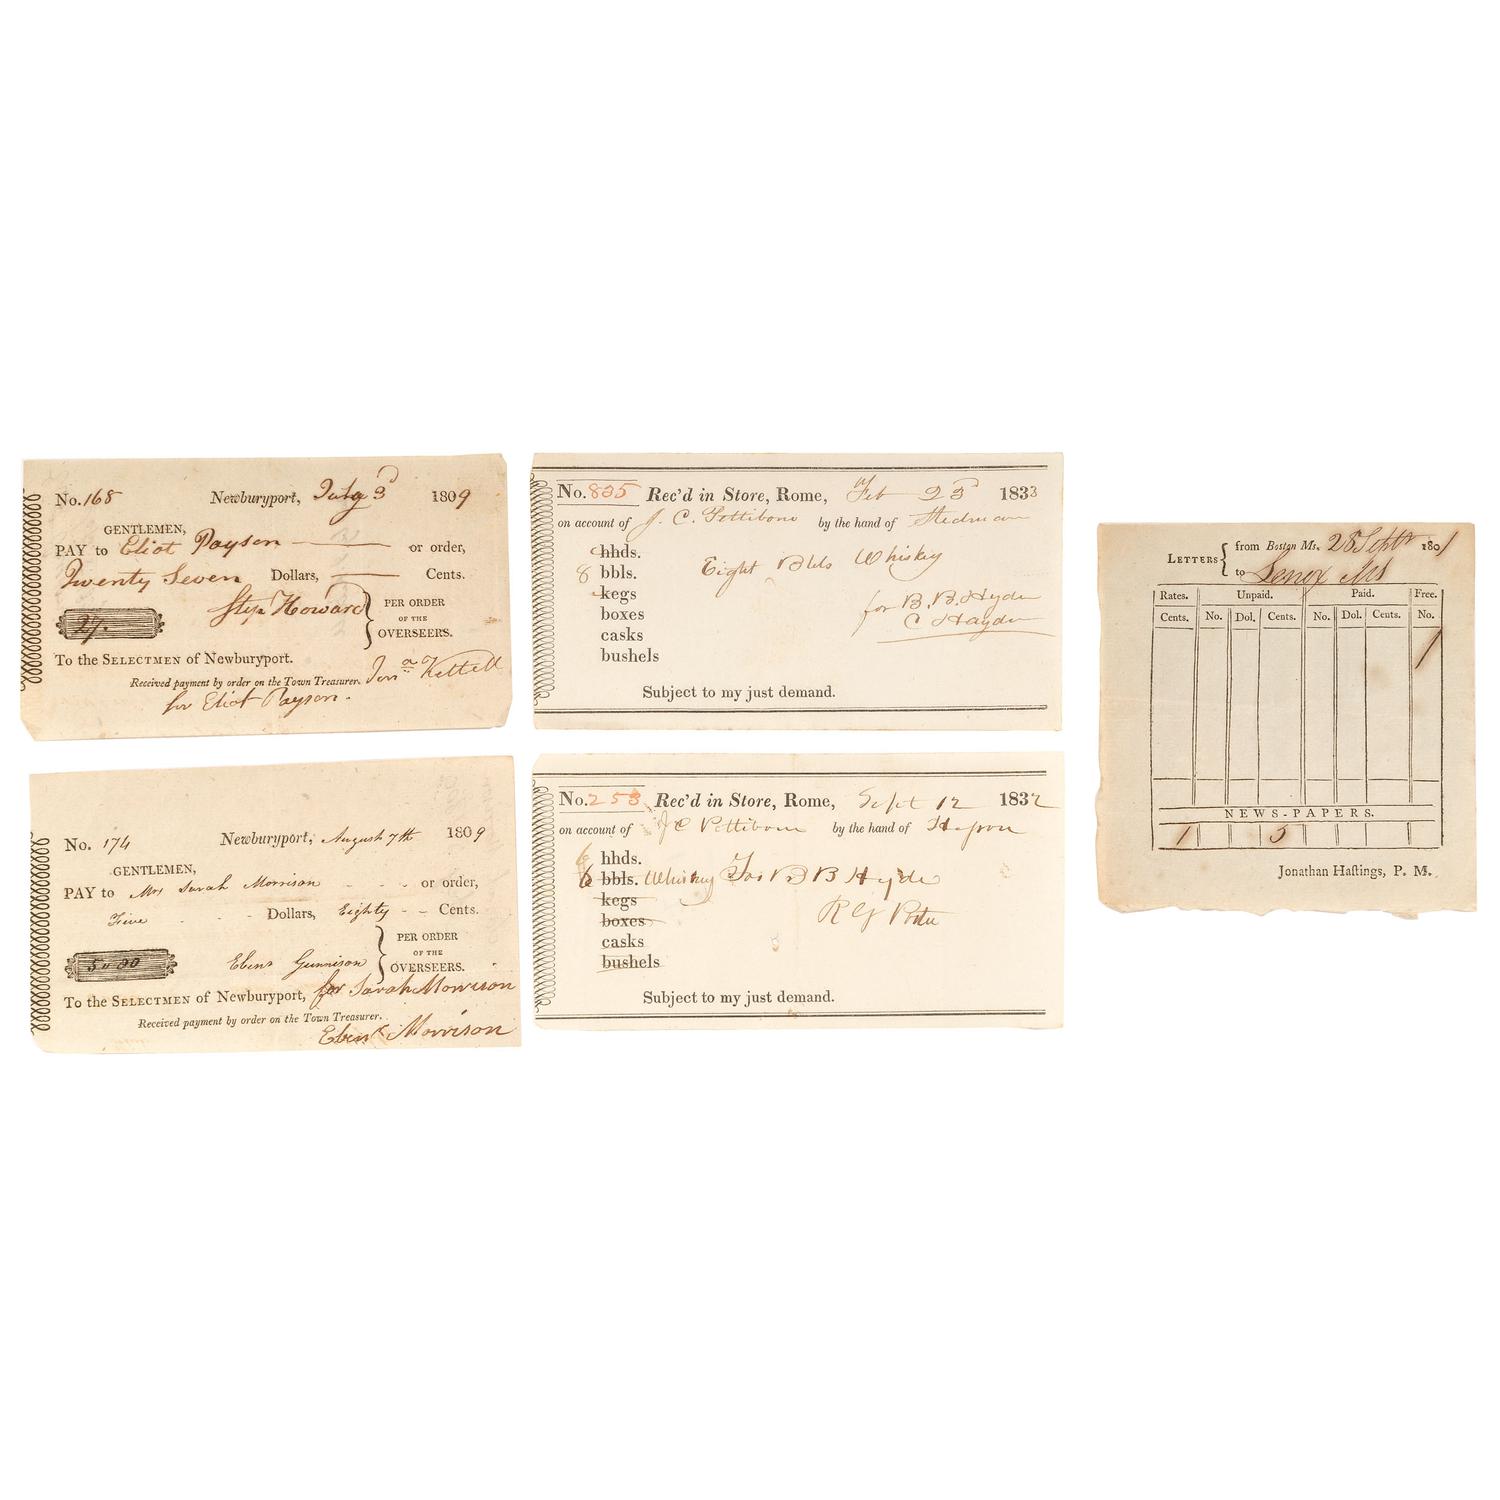 No. 168 Newburyport, July 3d 1809
GENTLEMEN,
PAY to Eliot Payson or order,
Twenty Seven Dollars, Cents.
27. Step Howard } PER ORDER
OF THE
OVERSEERS.
To the SELECTMEN of Newburyport.
Received payment by order on the Town Treasurer. Jona Kettell
for Eliot Payson.
No. 174 Newburyport, August 7th 1809
GENTLEMEN,
PAY to Mrs Sarah Morrison or order,
Five Dollars, Eighty Cents.
PER ORDER
OF THE
5 " 80 Ebenr Gunnison } OVERSEERS.
To the SELECTMEN of Newburyport, for Sarah Morrison
Received payment by order on the Town Treasurer.
Ebenr Morrison
No. 835 Rec'd in Store, Rome, Feb 23d 1833
on account of J. C. Pettibone by the hand of Stedman
hhds.
8 bbls. Eight Bbls Whiskey
kegs for B. B. Hyde
boxes C Hayden
casks
bushels
Subject to my just demand.
No. 253 Rec'd in Store, Rome, Sept 12 1832
on account of J C Pettibone by the hand of
hhds.
6 bbls. Whiskey For B B Hyde
kegs
boxes R G
casks
bushels
Subject to my just demand.
LETTERS { from Boston Ms. 28 Septr 1801
to Lenox Ms
Rates. Unpaid. Paid. Free.
Cents. No. Dol. Cents. No. Dol. Cents. No.
1
NEWS-PAPERS.
1 5
Jonathan Haſtings, P. M.